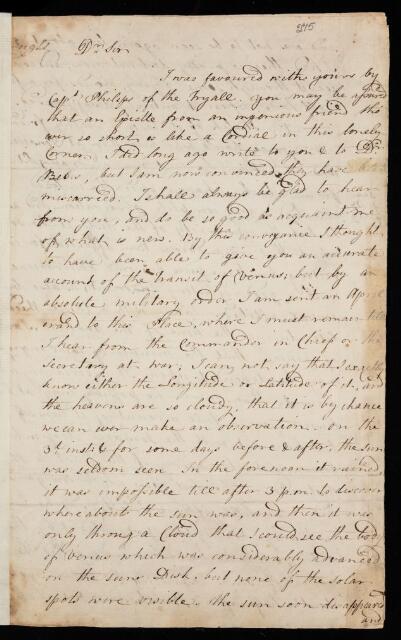 215
Dr Sir
I was favoured with yours by
Capt Philips of the Tryall. you may be assured
that an Epistle from an ingenious friend tho'
ever so short is like a Cordial in this lonely
Corner. I did long ago write to you & to Dr
but I am now convinced they have
miscarried. I shall always be glad to hear
from you, and do be so good as acquaint me
of what is new. By this conveyance I thought
to have been able to give you an accurate
account of the transit of Venus, but by an
absolute military order I am sent an April
erand to this Place, where I must remain till
I hear from the Commander in Chief or the
Secretary at war, I can not say that I exactly
know either the Longitude or Latitude of it, and
the heavens are so cloudy, that it is by chance
we can ever make an observation. on the
3d instt & for some days before & after, the sun
was seldom seen. In the forenoon it rained
it was impossible till after 3 p.m. to discover
whereabout the sun was, and then it was
only throug a Cloud that I could see the body
of Venus which was considerably advanced
on the suns Disk, but none of the solar
spots were visible. the sun soon disappeared
and